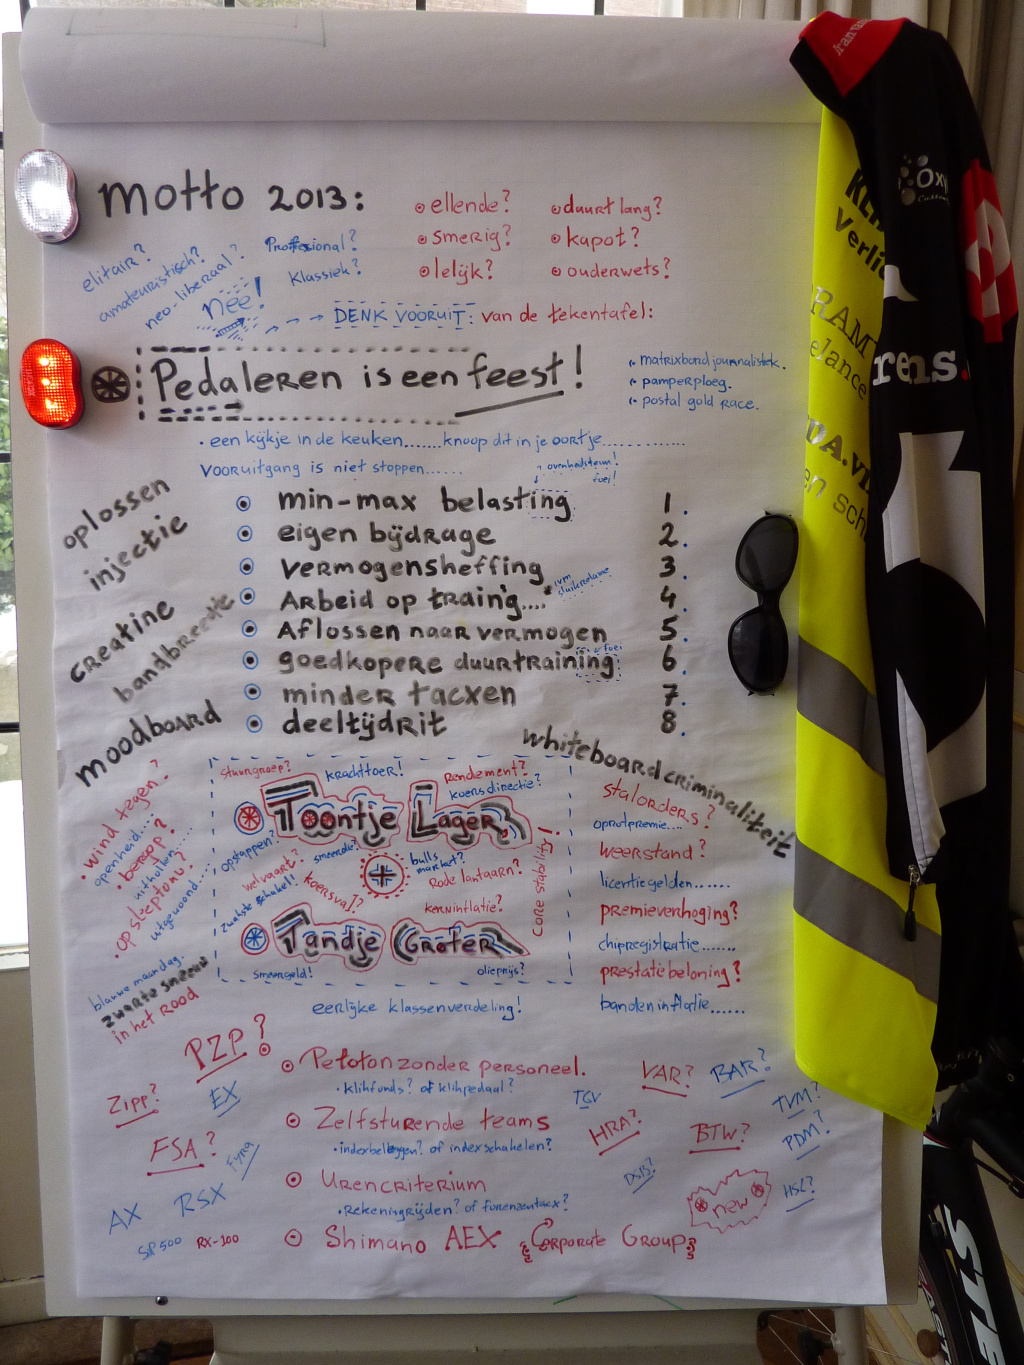 motto 2013:
ellende?
duurt lang?
smerig?
kapot?
lelijk?
ouderwets?
elitair?
amateuristisch?
neo-liberaal?
Professional?
Klassiek?
nee!
DENK VOORUIT: van de tekentafel:
Pedaleren is een feest!
matrixbord journalistiek.
pamperploeg.
postal gold race.
. een kijkje in de keuken.......knoop dit in je oortje..............
vooruitgang is niet stoppen......
foei!
min-max belasting 1.
eigen bijdrage 2.
vermogensheffing 3.
Arbeid op train'g.... 4.
ivm sluikreclame
Aflossen naar vermogen 5.
goedkopere duurtraining 6.
foei
minder tacxen 7.
deeltijdrit 8.
oplossen
injectie
creatine
bandbreedte
moodboard
whiteboard criminaliteit
stuurgroep?
krachttoer!
rendement?
koersdirectie?
Toontje Lager.
opstappen?
smeerolie?
bulls market?
welvaart?
Rode lantaarn?
zwakste schakel!
koersval?
kerninflatie?
core stability!
Tandje Groter
smeergeld!
olieprijs?
eerlijke klassenverdeling!
. wind tegen?
openheid....
. beroep?
uitholen....
. op sleeptouw?
uitgewoond....
blauwe maandag.
zwarte sneeuw
in het rood
stalorders?
oprotpremie....
weerstand?
licentiegelden......
premieverhoging?
chipregistratie.......
prestatiebeloning?
bandeninflatie......
PZP?
Peloton zonder personeel.
. klihfonds? of klihpedaal?
Zelfsturende teams
. indexbeleggen? of indexschakelen?
Urencriterium
. rekeningrijden? of forenzentacx?
Shimano AEX {Corporate Group}
Zipp?
EX
FSA?
Fyra
AX
RSX
SP500
RX-100
VAR?
BAR?
TGV
TVM?
HRA?
BTW?
PDM?
DSB?
HSL?
new
Verli
RAM
elance
DA.VI
en sch
rens.
Oxy
STE